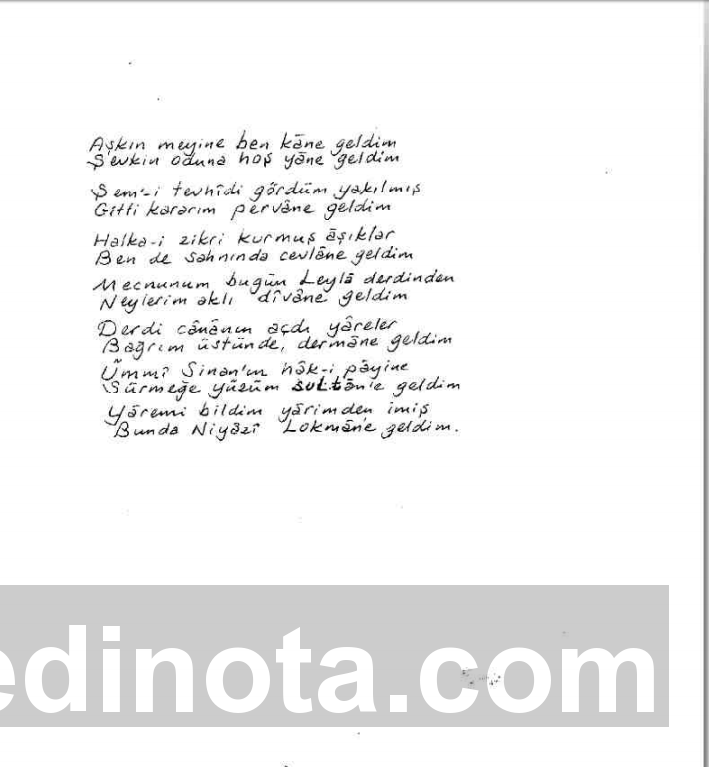 Aşkın meyine ben kāne geldim
Şevkin oduna hoş yāne geldim
Şem'-i tevhîdi gördüm yakılmış
Gitti kararım pervâne geldim
Halka-i zikri kurmuş āşıklar
Ben de sahnında cevlâne geldim
Mecnunum bugün Leylâ derdinden
Neylerim aklı dîvâne geldim
Derdi cânânın açdı yâreler
Bağrım üstünde, dermâne geldim
Ümmî Sinan'ın hâk-i pâyine
Sürmeğe yüzüm sultān'e geldim
Yâremi bildim yârimden imiş
Bunda Niyâzî Lokmān'e geldim.
edinota.com